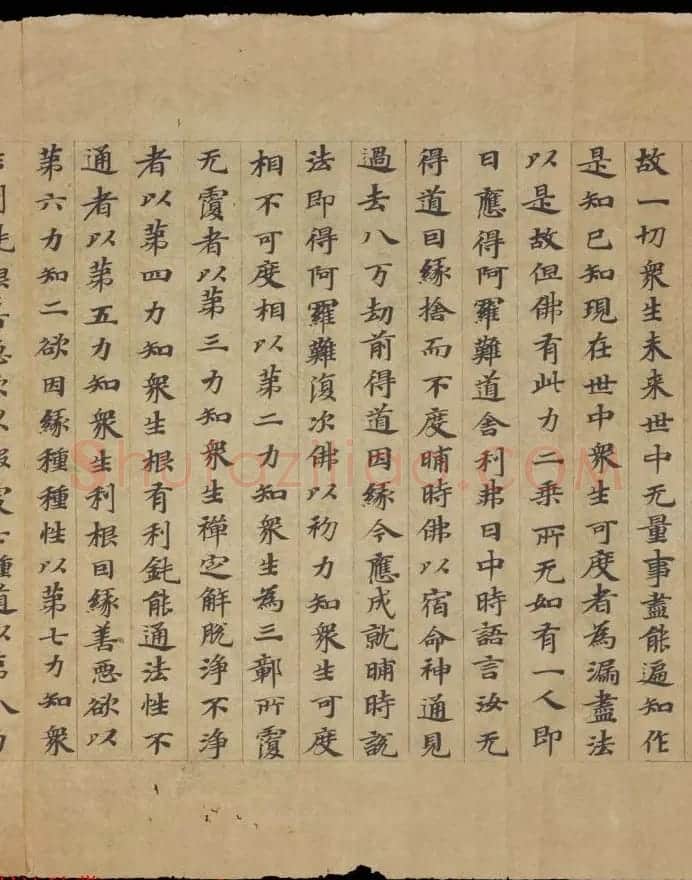 故一切衆生未来世中无量事盡能遍知作
是知已知現在世中衆生可度者為漏盡法
以是故但佛有此力二乗所无如有一人即
日應得阿羅難道舍利弗日中時語言汝无
得道囙縁捨而不度晡時佛以宿命神通見
過去八万劫前得道因縁今應成就晡時説
法即得阿羅難復次佛以初力知衆生可度
相不可度相以第二力知衆生為三鄣所覆
无覆者以第三力知衆生禪定解脱浄不浄
者以第四力知衆生根有利鈍能通法性不
通者以第五力知衆生利根囙縁善惡欲以
第六力知二欲因縁種種性以第七力知衆
Shufaziliao.COM